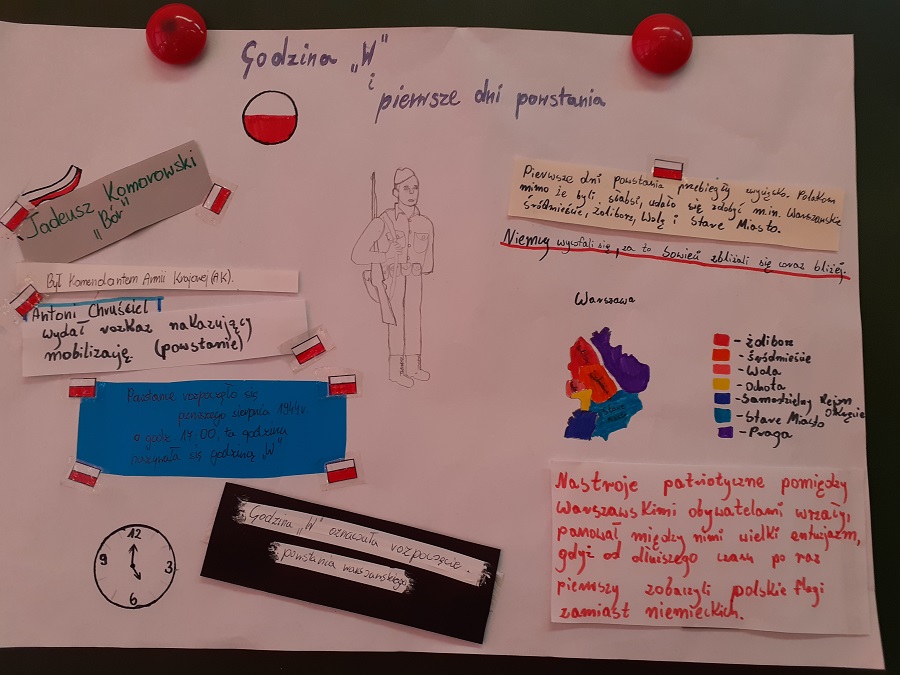 Godzina „W"
i
pierwsze dni powstania
Tadeusz Komorowski
„Bór"
Był Komendantem Armii Krajowej (AK).
Antoni Chruściel
wydał rozkaz nakazujący
mobilizację (powstanie)
Powstanie rozpoczęło się
pierwszego sierpnia 1944r.
o godz. 17:00, ta godzina
nazywała się godziną „W"
12
9
3
6
Godzina „W" oznaczała rozpoczęcie
powstania warszawskiego.
Pierwsze dni powstania przebiegły Polakom
mimo że byli słabsi, udało się zdobyć m.in. Warszawskie
Śródmieście, Żoliborz, Wolę i Stare Miasto.
Niemcy wycofali się, za to Sowieci zbliżali się coraz bliżej.
Warszawa
Stare
Miasto
- Żoliborz
- Śródmieście
- Wola
- Ochota
- Samodzielny Rejon
Okęcie
- Stare Miasto
- Praga
Nastroje patriotyczne pomiędzy
warszawskimi obywatelami wrzały,
panował między nimi wielki entuzjazm,
gdyż od dłuższego czasu po raz
pierwszy zobaczyli polskie flagi
zamiast niemieckich.